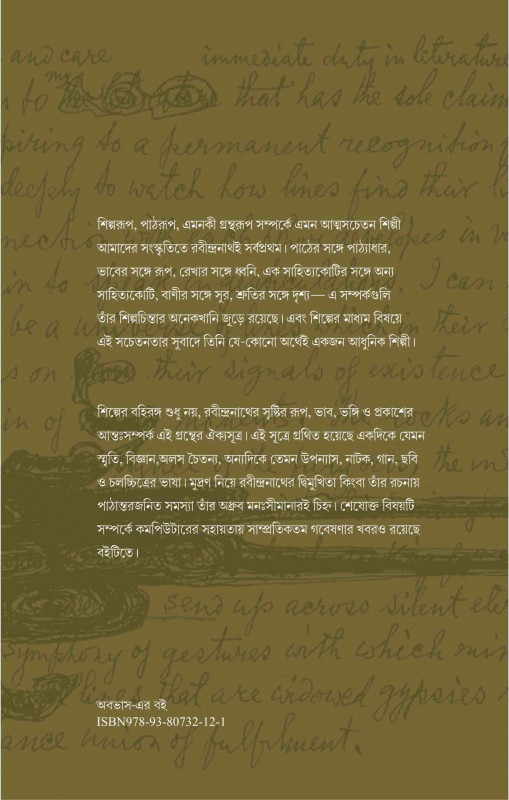 and care immediate duty in literature
to my that has the sole claim
piring to a permanent recognition
deeply to watch how lines find their li
শিল্পরূপ, পাঠরূপ, এমনকী গ্রন্থরূপ সম্পর্কে এমন আত্মসচেতন শিল্পী
আমাদের সংস্কৃতিতে রবীন্দ্রনাথই সর্বপ্রথম। পাঠের সঙ্গে পাঠ্যাধার,
ভাবের সঙ্গে রূপ, রেখার সঙ্গে ধ্বনি, এক সাহিত্যকোটির সঙ্গে অন্য
সাহিত্যকোটি, বাণীর সঙ্গে সুর, শ্রুতির সঙ্গে দৃশ্য— এ সম্পর্কগুলি
তাঁর শিল্পচিন্তার অনেকখানি জুড়ে রয়েছে। এবং শিল্পের মাধ্যম বিষয়ে
এই সচেতনতার সুবাদে তিনি যে-কোনো অর্থেই একজন আধুনিক শিল্পী।
their signals of existence
শিল্পের বহিরঙ্গ শুধু নয়, রবীন্দ্রনাথের সৃষ্টির রূপ, ভাব, ভঙ্গি ও প্রকাশের
আন্তঃসম্পর্ক এই গ্রন্থের ঐক্যসূত্র। এই সূত্রে গ্রথিত হয়েছে একদিকে যেমন
স্মৃতি, বিজ্ঞান,অলস চৈতন্য, অন্যদিকে তেমন উপন্যাস, নাটক, গান, ছবি
ও চলচ্চিত্রের ভাষা। মুদ্রণ নিয়ে রবীন্দ্রনাথের দ্বিমুখিতা কিংবা তাঁর রচনায়
পাঠান্তরজনিত সমস্যা তাঁর অধ্রুব মনঃসীমানারই চিহ্ন। শেষোক্ত বিষয়টি
সম্পর্কে কমপিউটারের সহায়তায় সাম্প্রতিকতম গবেষণার খবরও রয়েছে
বইটিতে।
send up across silent eter
symphony of gestures with which min
lines that are widowed gypsies
অবভাস-এর বই
ISBN978-93-80732-12-1
ance union of fulfilment.